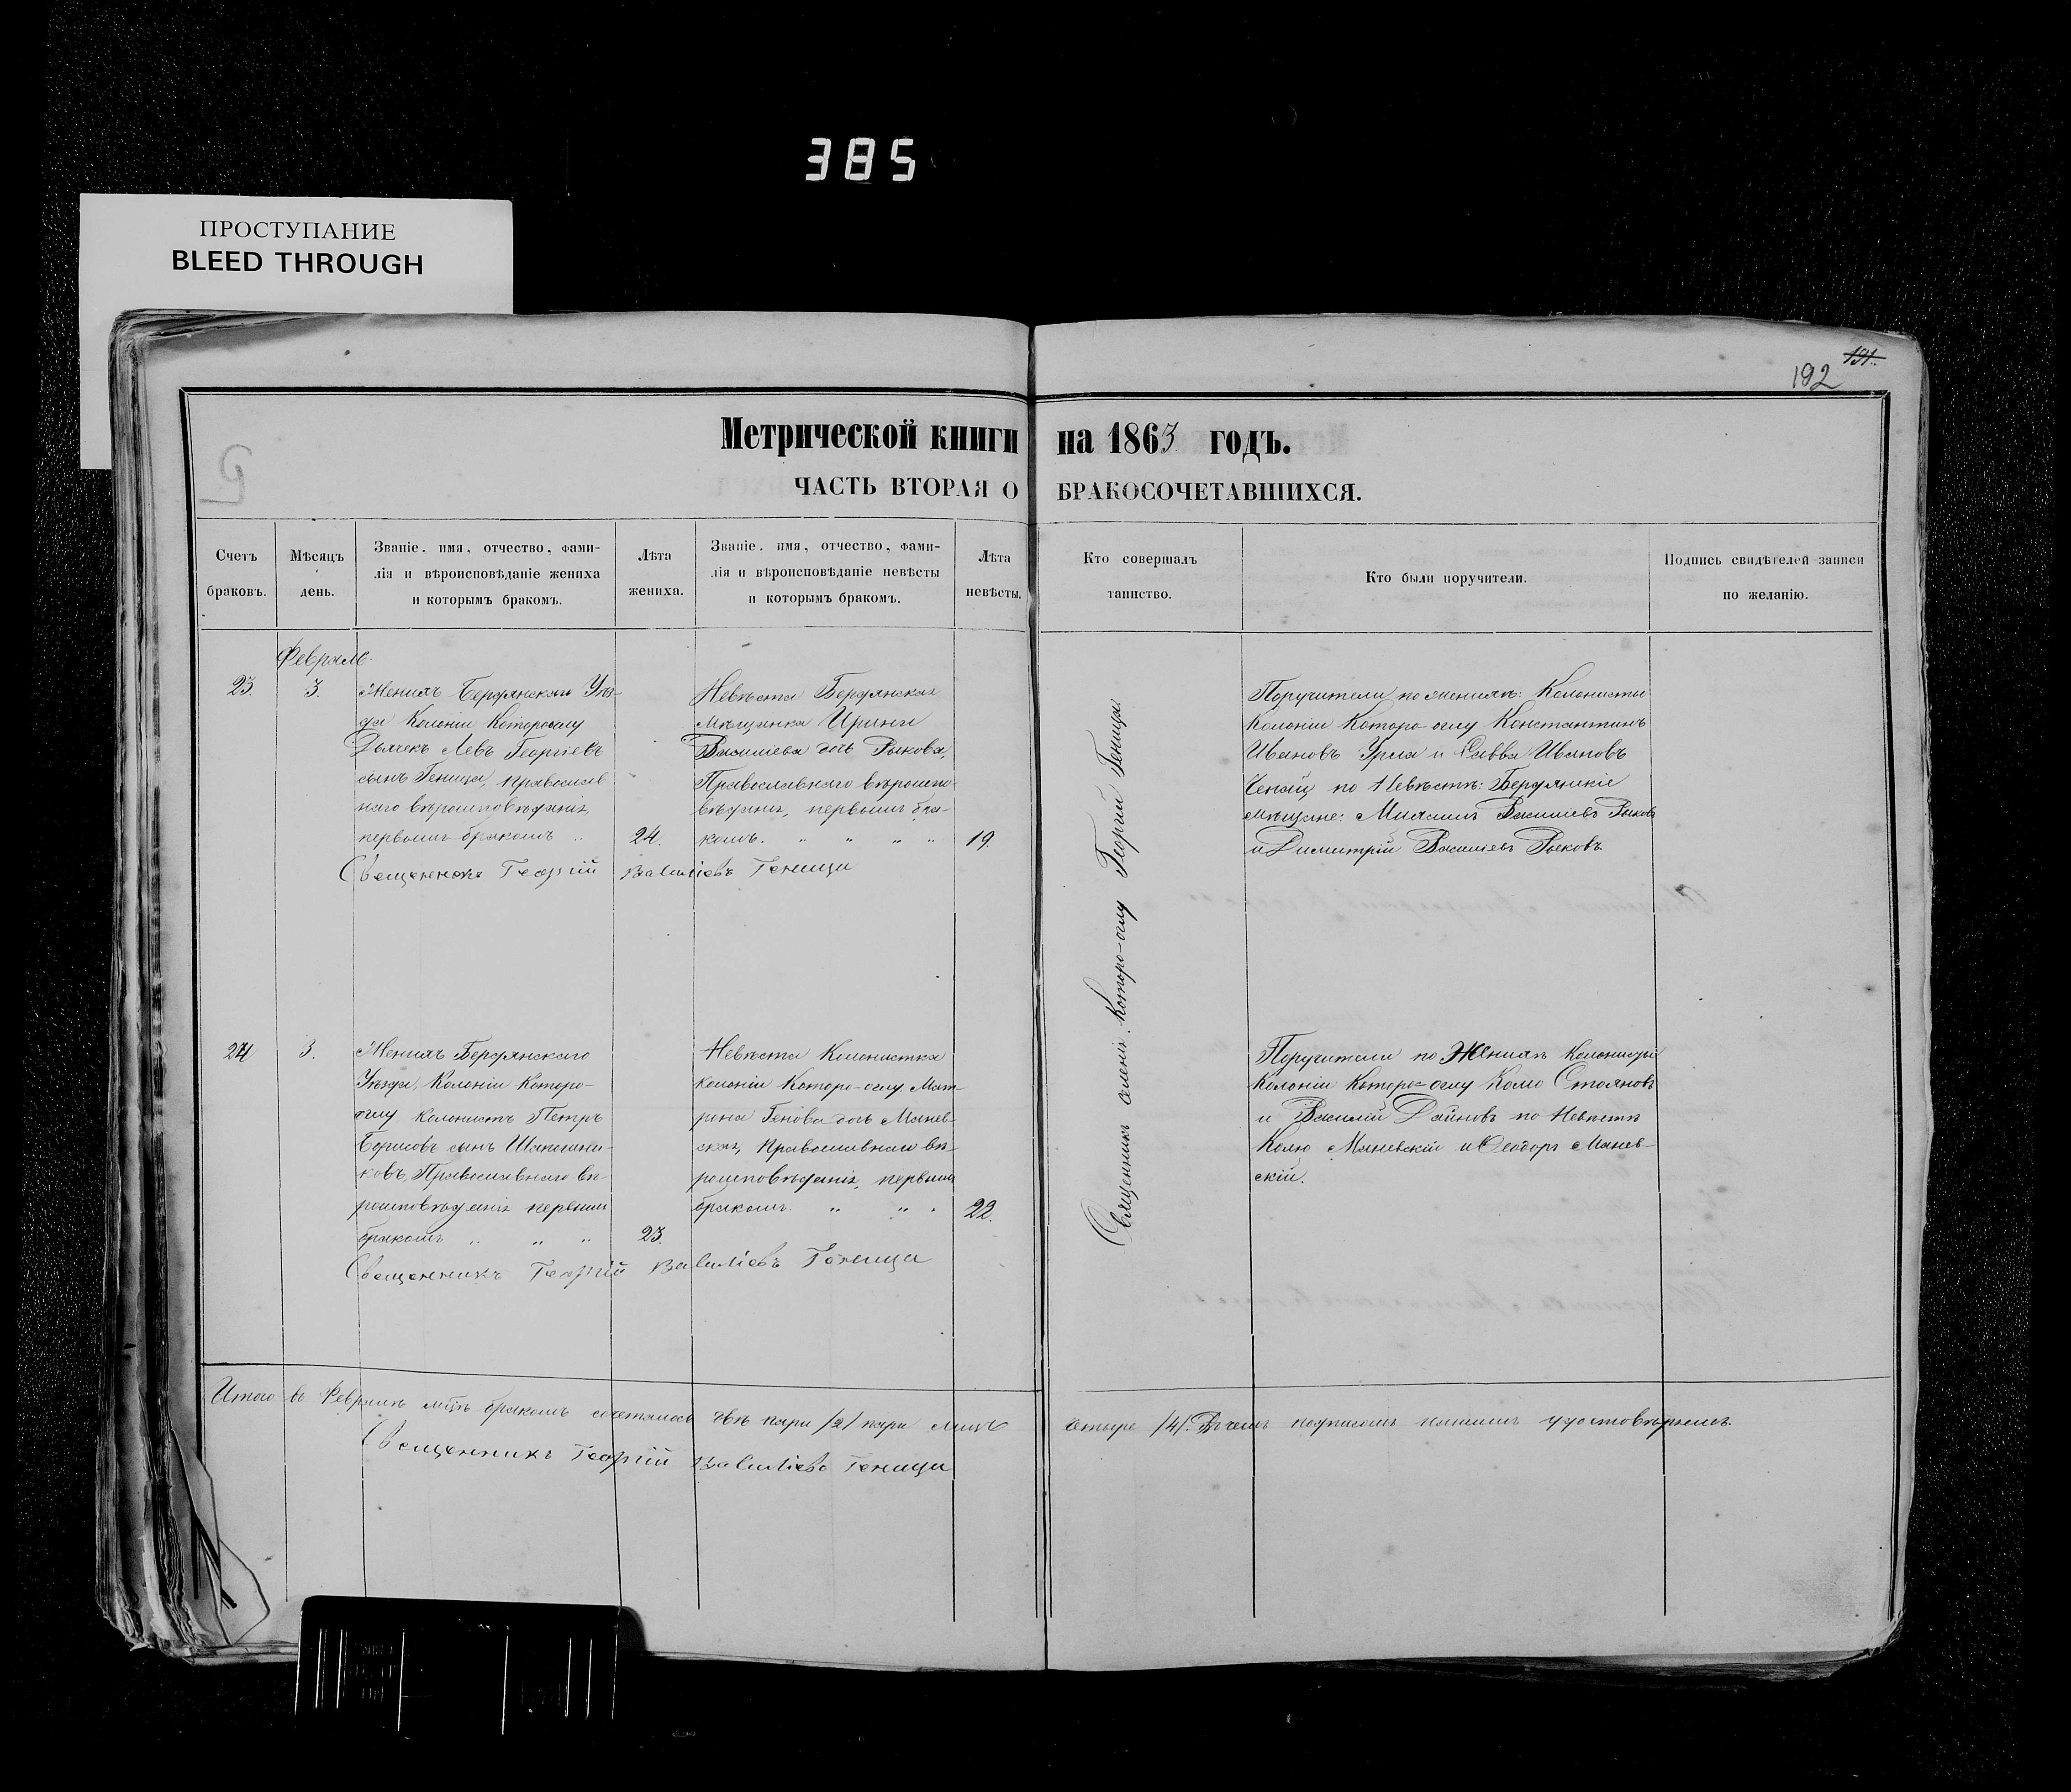 385
ПРОСТУПАНИЕ
BLEED THROUGH
191.
192
Метрической книги на 1863 годъ.
ЧАСТЬ ВТОРАЯ О БРАКОСОЧЕТАВШИХСЯ.
Счетъ
браковъ.
Мѣсяцъ
день.
Званіе, имя, отчество, фами-
лія и вѣроисповѣданіе жениха
и которымъ бракомъ.
Лѣта
жениха.
Званіе, имя, отчество, фами-
лія и вѣроисповѣданіе невѣсты
и которымъ бракомъ.
Лѣта
невѣсты.
Кто совершалъ
таинство.
Кто были поручители.
Подпись свидѣтелей записи
по желанію.
Февраль.
23.
3.
Женихъ Бердянскаго Уѣз-
да Колоніи Которооглу
Дьячекъ Левъ Георгіевъ
сынъ Геница, православ
наго вѣроисповѣданія,
первымъ бракомъ
24.
Невѣста Бердянская
мѣщанка Ирина
Васильева дочь Рыкова,
Православнаго вѣроиспо-
вѣданія, первымъ бра-
комъ. " " " "
19.
Священникъ Георгій Василіевъ Геница
Священникъ селенія Которо-оглу Георгій Геница.
Поручители по женихѣ: Колонисты
Колоніи Которо-оглу Константинъ
Ивановъ и Савва Ивановъ
по Невѣстѣ: Бердянскіе
мѣщане: Василіевъ Рыковъ
и Димитрій Василіевъ Рыковъ.
24
3.
Женихъ Бердянскаго
Уѣзда, Колоніи Которо-
оглу колонистъ Петръ
Борисовъ сынъ
ковъ, Православнаго вѣ-
роисповѣданія первымъ
бракомъ " " "
23.
Невѣста Колонистка
колоніи Которо-оглу Мат-
рена Генова дочь Манев-
ская, Православнаго вѣ-
роисповѣданія, первымъ
бракомъ. " " "
22.
Священникъ Георгій Василіевъ Геница
Поручители по Женихѣ Колонисты
Колоніи Которо-оглу Колю Стояновъ
и Василій Дайновъ по Невѣстѣ
Колю Маневскій и Ѳеодоръ Манев-
скій.
Итого въ Февралѣ мцѣ бракомъ сочеталось двѣ пары /2/ пары лицъ четыре /4/. Въ чемъ подписомъ нашимъ удостовѣряемъ.
Священникъ Георгій Василіевъ Геница